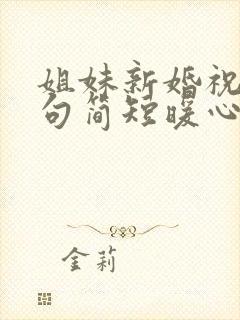 姐妹新婚祝
句简短暖心
金莉